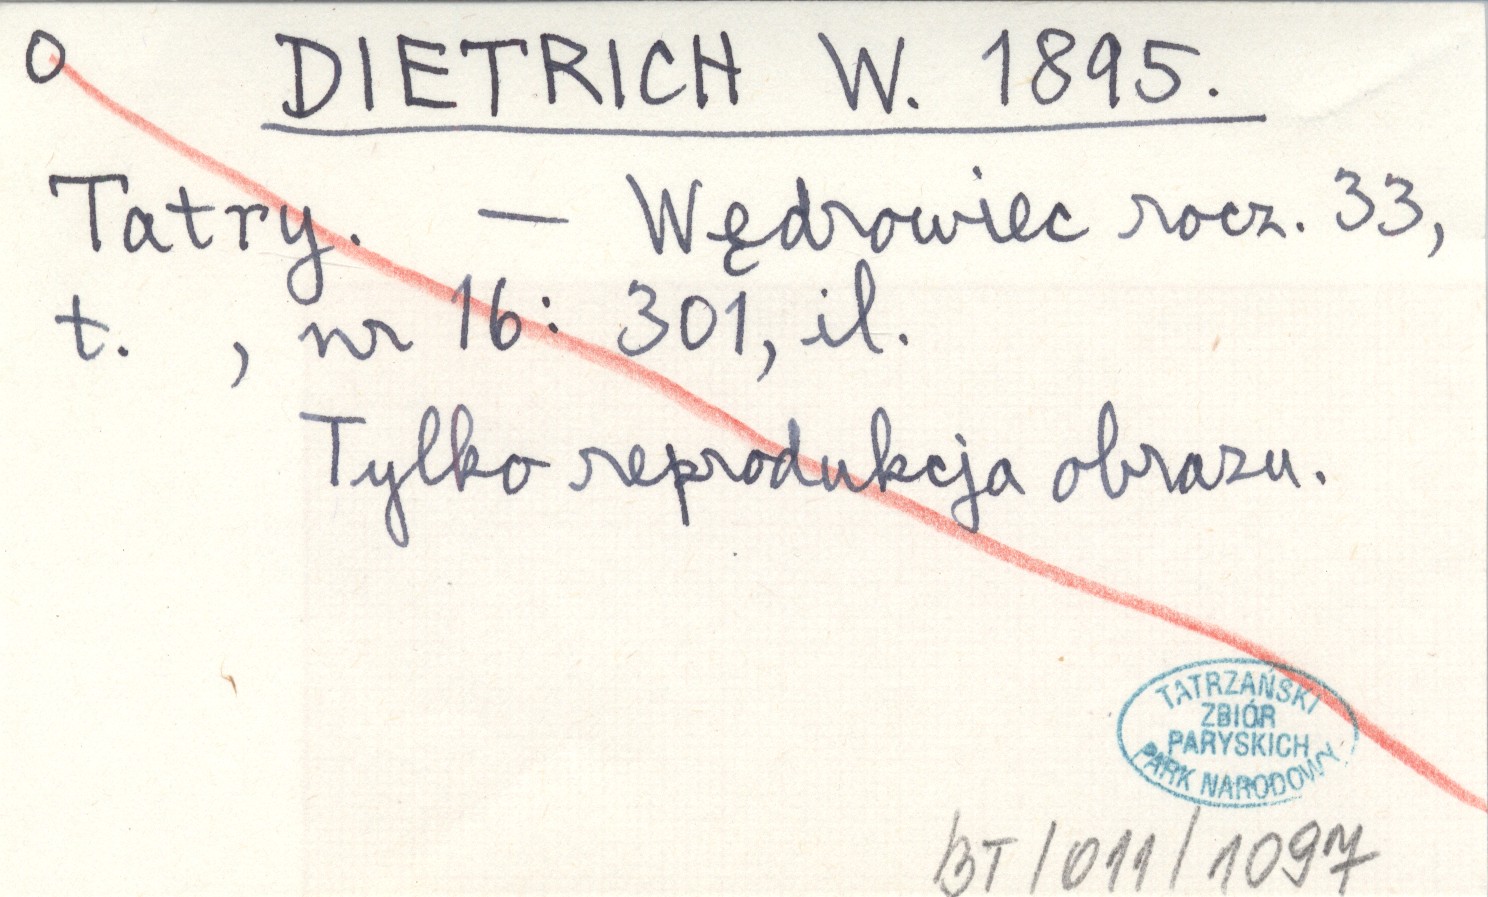 O DIETRICH W. 1895.
Tatry. — Wędrowiec rocz. 33,
t. , nr 16: 301, il.
Tylko reprodukcja obrazu.
TATRZAŃSKI
ZBIÓR
PARYSKICH
PARK NARODOWY
BT/011/1097